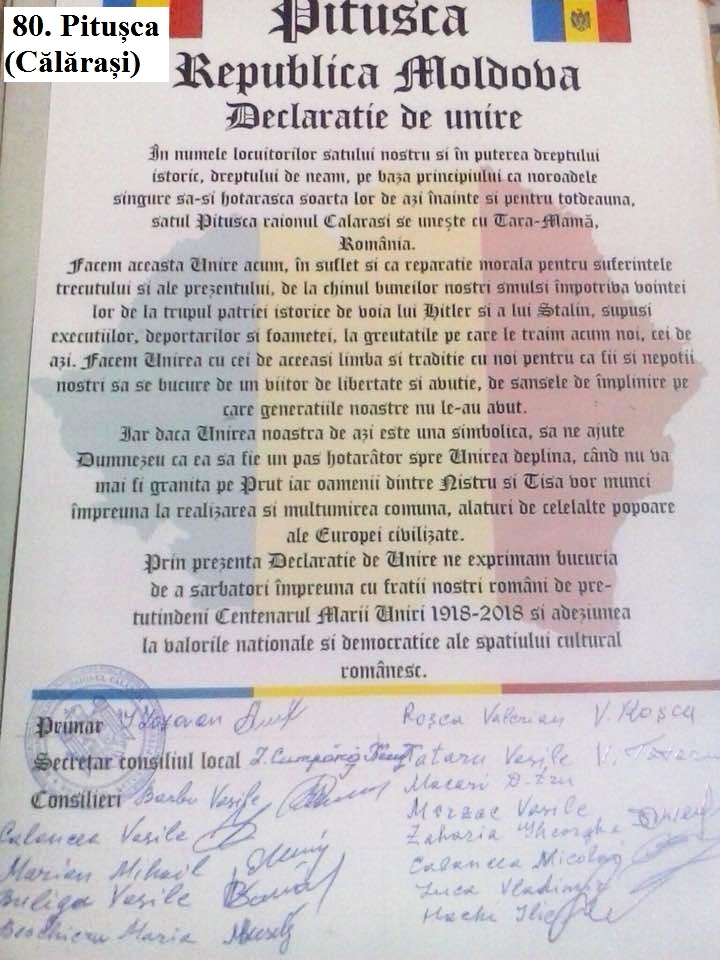 80. Pitușca
(Călărași)
Pitusca
Republica Moldova
Declaratie de unire
În numele locuitorilor satului nostru si în puterea dreptului
istoric, dreptului de neam, pe baza principiului ca noroadele
singure sa-si hotarasca soarta lor de azi înainte si pentru totdeauna,
satul Pitusca raionul Calarasi se unește cu Tara-Mamă,
România.
Facem aceasta Unire acum, în suflet si ca reparatie morala pentru suferintele
trecutului si ale prezentului, de la chinul buneilor nostri smulsi împotriva vointei
lor de la trupul patriei istorice de voia lui Hitler si a lui Stalin, supusi
executiilor, deportarilor si foametei, la greutatile pe care le traim acum noi, cei de
azi. Facem Unirea cu cei de aceeasi limba si traditie cu noi pentru ca fii si nepotii
nostri sa se bucure de un viitor de libertate si avutie, de sansele de împlinire pe
care generatiile noastre nu le-au avut.
Iar daca Unirea noastra de azi este una simbolica, sa ne ajute
Dumnezeu ca ea sa fie un pas hotarâtor spre Unirea deplina, când nu va
mai fi granita pe Prut iar oamenii dintre Nistru si Tisa vor munci
împreuna la realizarea si multumirea comuna, alaturi de celelalte popoare
ale Europei civilizate.
Prin prezenta Declaratie de Unire ne exprimam bucuria
de a sarbatori împreuna cu fratii nostri români de pre-
tutindeni Centenarul Marii Uniri 1918-2018 si adeziunea
la valorile nationale si democratice ale spatiului cultural
românesc.
Primar
Roșca Valerian V. Roșca
Secretar consiliul local
Tataru Vasile
Consilieri Barbu Vasile
Macari
Marzac Vasile
Calancea Vasile
Zaharia Gheorghe
Marian Mihail
Calancea Nicolae
Buliga Vasile
Luca Vladimir
Maria
Ilie